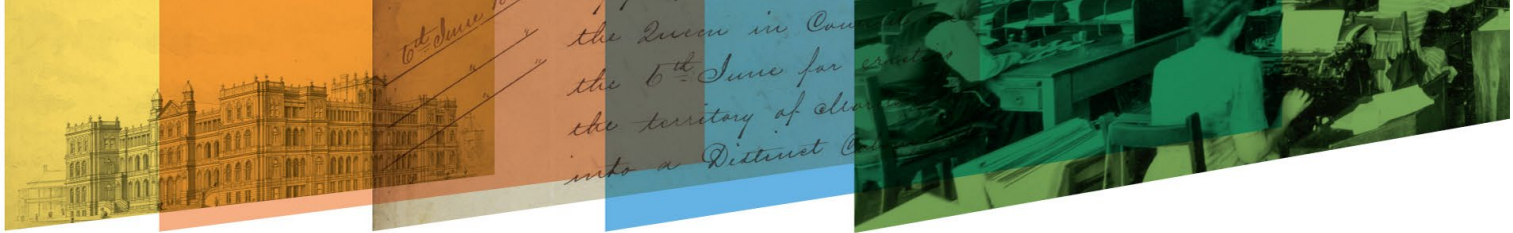 6th June
the Queen in Coun
the 6th June for erecting
the territory of
into a Distinct Co